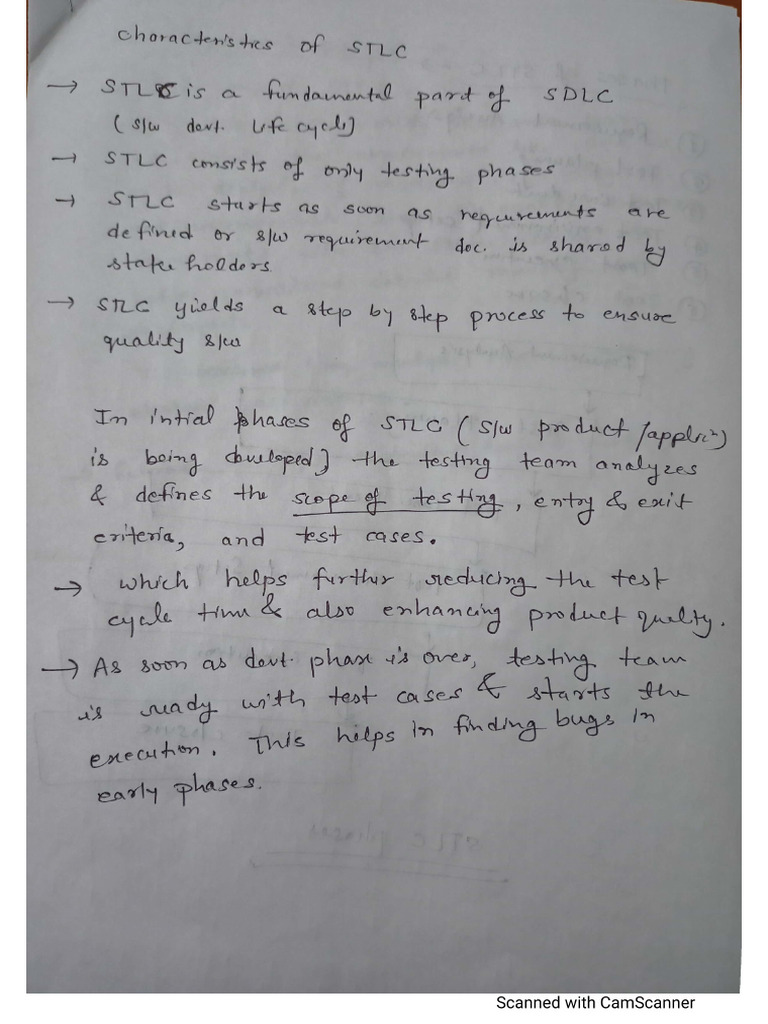 Characteristics of STLC
→ STLC is a fundamental part of SDLC
(s/w devt. life cycle)
→ STLC consists of only testing phases
→ STLC starts as soon as requirements are
defined or s/w requirement doc. is shared by
stake holders
→ STLC yields a step by step process to ensure
quality s/w
In intial phases of STLC (s/w product /applicn)
is being developed) the testing team analyzes
& defines the scope of testing, entry & exit
criteria, and test cases.
→ which helps further reducing the test
cycle time & also enhancing product quality.
→ As soon as devt. phase is over, testing team
is ready with test cases & starts the
execution. This helps in finding bugs in
early phases.
Scanned with CamScanner